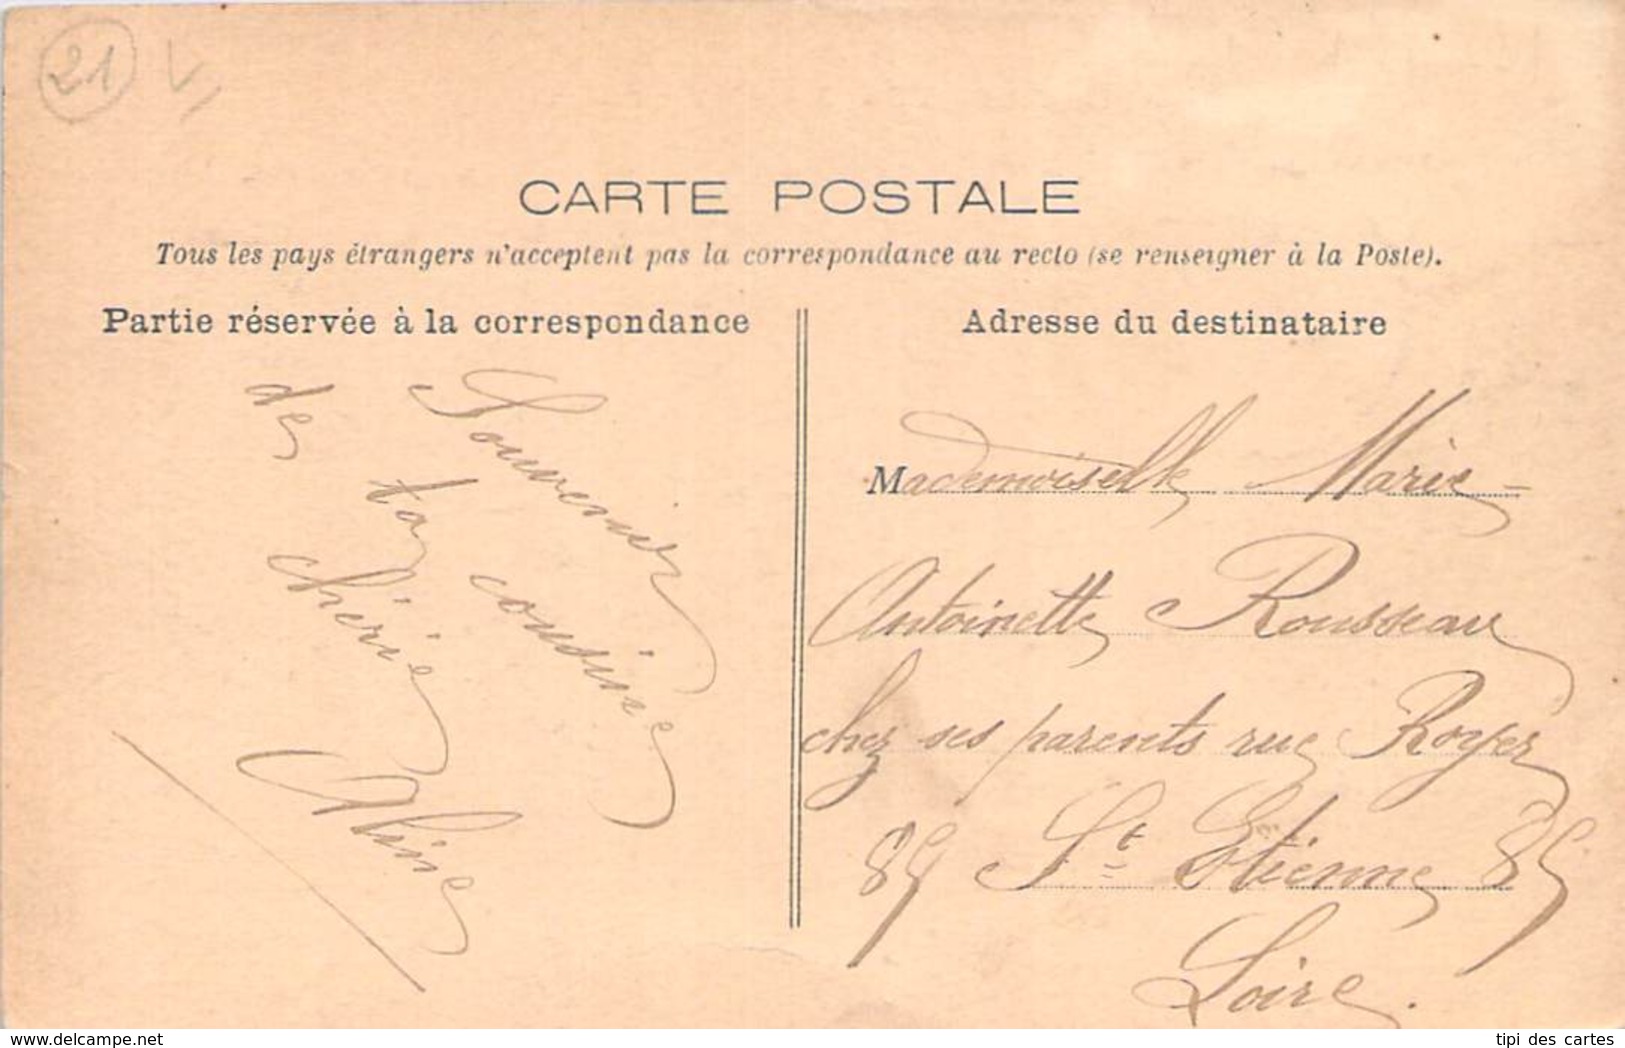 21
CARTE POSTALE
Tous les pays étrangers n'acceptent pas la correspondance au recto (se renseigner à la Poste).
Partie réservée à la correspondance
Souvenir
de ta cousine
chérie
Aline
Adresse du destinataire
Mademoiselle Marie-
Antoinette Rousseau
chez ses parents rue Royer
89 St Étienne 89
Loire.
delcampe.net
tipi des cartes